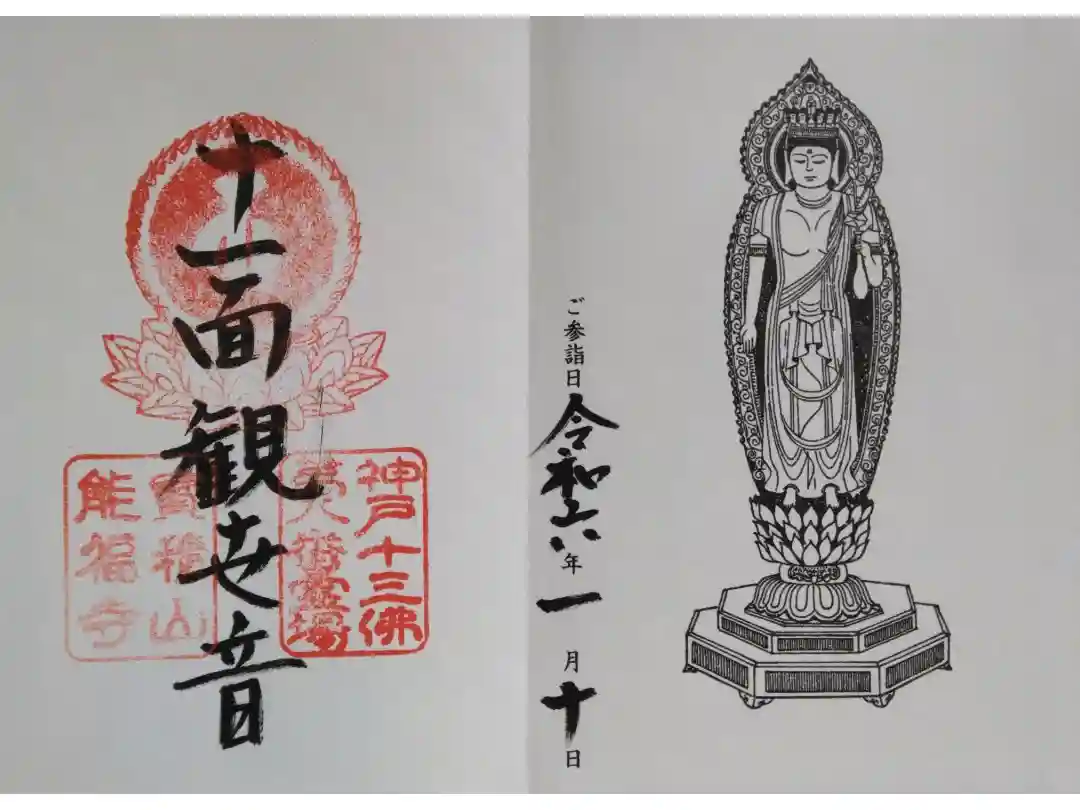 十一面観世音
神戸十三佛
第八番霊場
寶積山
能福寺
ご参詣日 令和六年一月十日